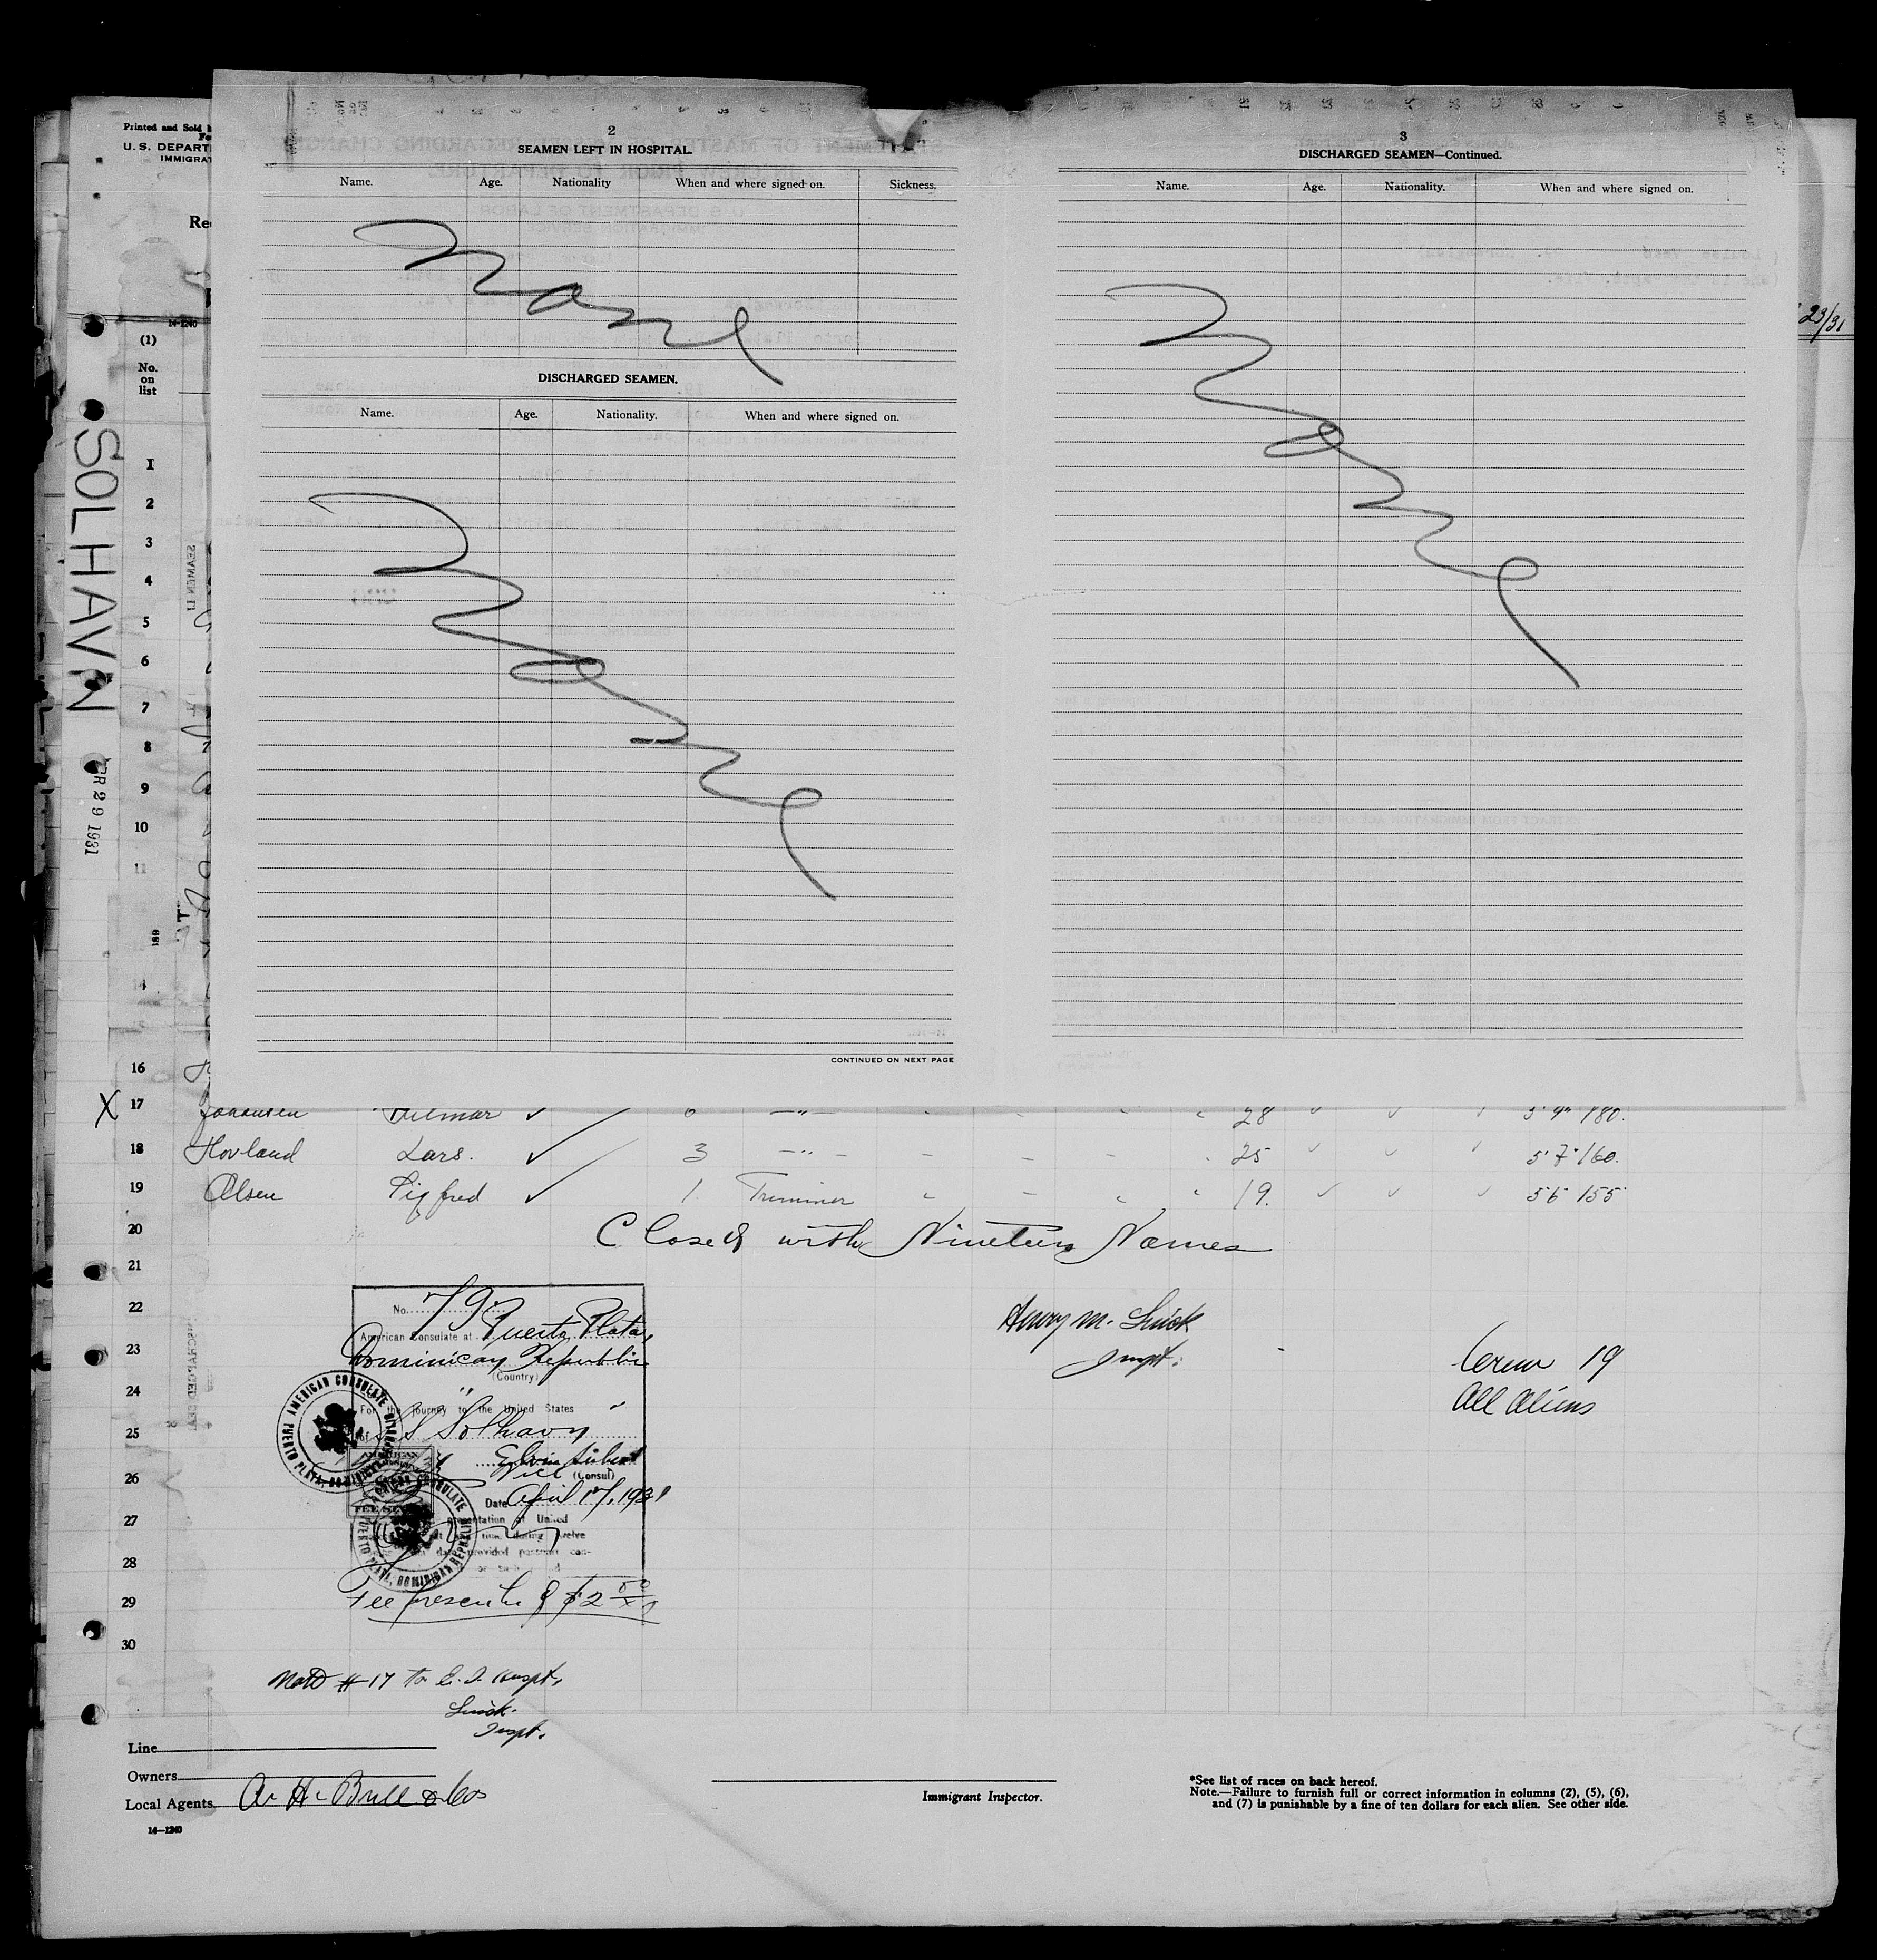 Printed and Sold
U. S. DEPART
IMMIGRAT
Re
14-1240
(1)
No.
on
list
SOLHAVN
R 29 1931
23/31
2
SEAMEN LEFT IN HOSPITAL.
Name. Age. Nationality When and where signed on. Sickness.
None
DISCHARGED SEAMEN.
Name. Age. Nationality. When and where signed on.
None
CONTINUED ON NEXT PAGE
3
DISCHARGED SEAMEN—Continued.
Name. Age. Nationality. When and where signed on.
None
1
2
3
4
5
6
7
8
9
10
11
14
16
X 17 Johansen Hilmar ✓ 6 —"— 28 ✓ ✓ ✓ 5'9" 180.
18 Hovland Lars. ✓ 3 —"— 25 ✓ ✓ ✓ 5'7" 160.
19 Olsen Sigfred ✓ 1. Trimmer 19. ✓ ✓ ✓ 5 6 155
20 Closed with Nineteen Names
21
22
23
24
25
26
27
28
29
30
No. 79
American Consulate at Puerto Plata,
Dominican Republic
(Country)
For the journey to the United States
of SS "Solhavn"
Vice (Consul)
Date April 17, 1931
AMERICAN CONSULATE
PUERTO PLATA, DOMINICAN REPUBLIC
Fee
Henry M.
Inspt.
Crew 19
All Aliens
#17 to E. I. Hospt.
Inspt.
Line
Owners
Local Agents A. H. Bull & Co
14—1240
Immigrant Inspector.
*See list of races on back hereof.
Note.—Failure to furnish full or correct information in columns (2), (5), (6),
and (7) is punishable by a fine of ten dollars for each alien. See other side.